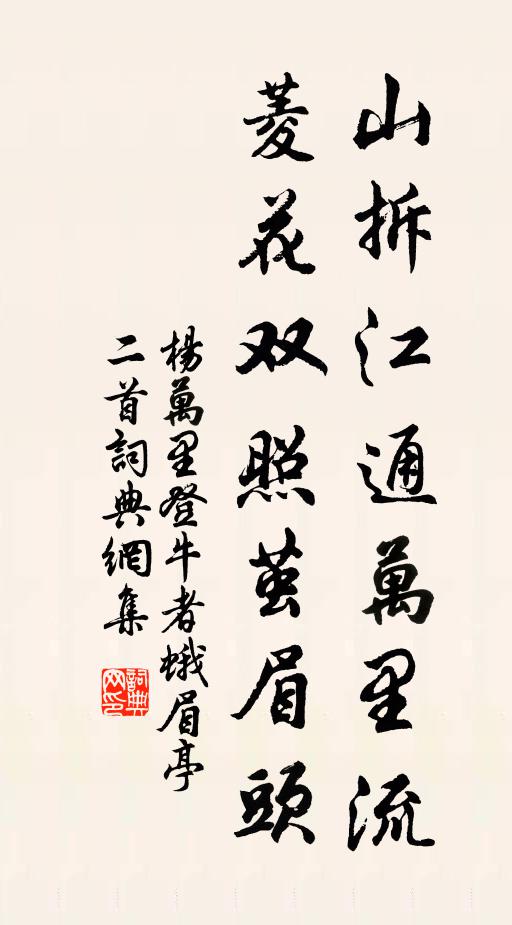 山拆江通萬里流
菱花双照茧眉頭
楊萬里登牛者蛾眉亭
二首詞典網集
詞典
网印